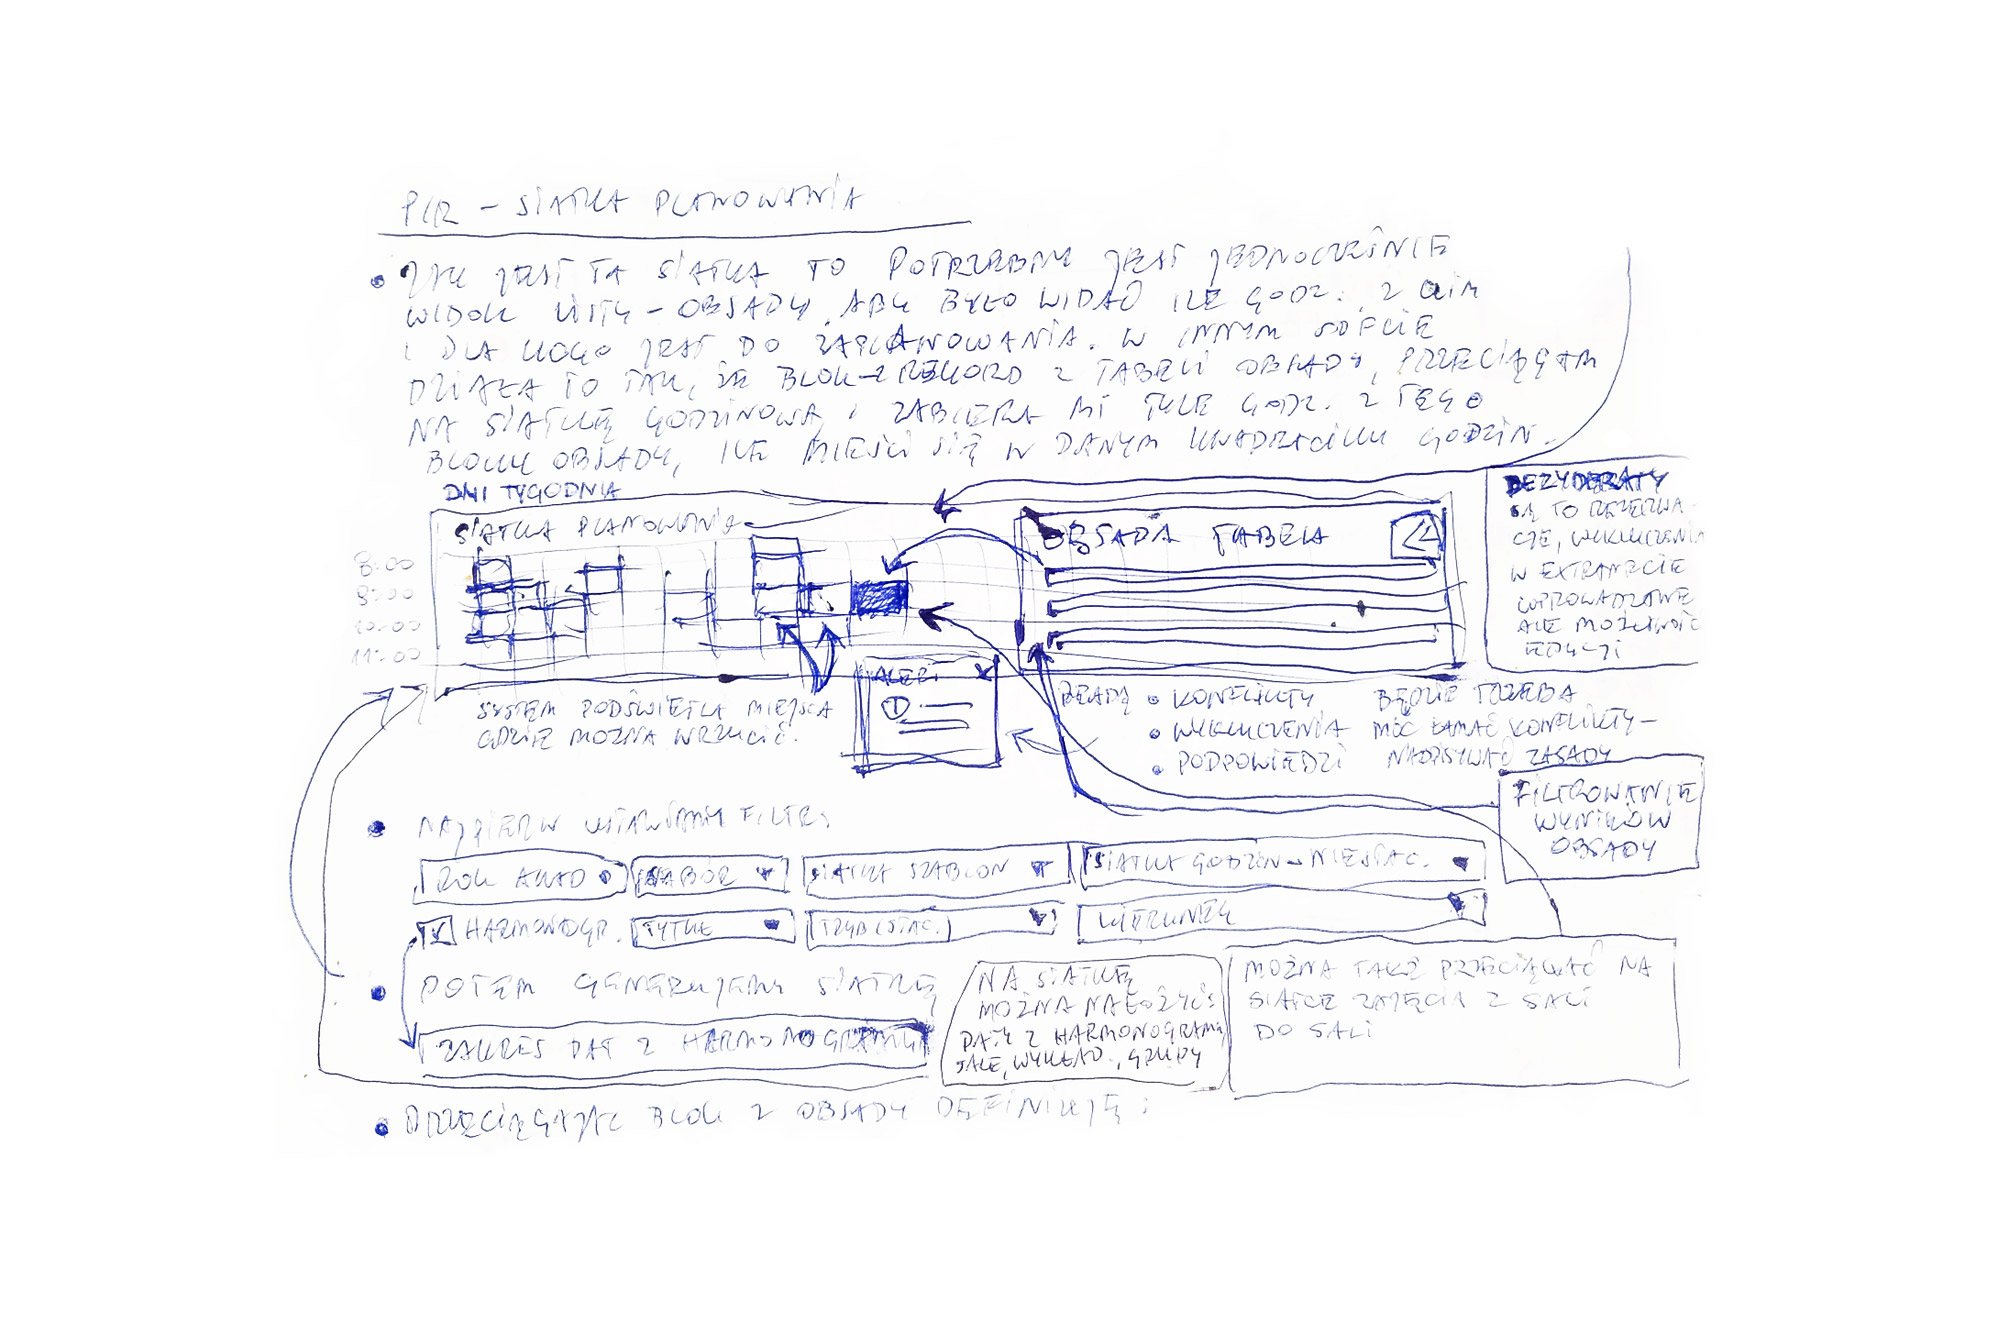 PLR – SIATKA PLANOWANIA
• JAK JEST TA SIATKA TO POTRZEBNY JEST JEDNOCZEŚNIE
WIDOK LISTY – OBSADY, ABY BYŁO WIDAĆ ILE GODZ. Z CZYM
I DLA KOGO JEST DO ZAPLANOWANIA. W INNYM SOFCIE
DZIAŁA TO TAK, ŻE BLOK–REKORD Z TABELI OBSADY, PRZECIĄGAM
NA SIATKĘ GODZINOWĄ I ZABIERA MI TYLE GODZ. Z TEGO
BLOKU OBSADY, ILE MIEŚCI SIĘ W DANYM KWADRACIKU GODZIN.
DNI TYGODNIA
SIATKA PLANOWANIA
8:00
9:00
10:00
11:00
OBSADA TABELA
DEZYDERATY
SĄ TO REZERWA-
CJE, WYKLUCZENIA
W EXTRANECIE
WPROWADZONE
ALE MOŻLIWOŚĆ
EDYCJI
SYSTEM PODŚWIETLA MIEJSCA
GDZIE MOŻNA WRZUCIĆ.
ALERT X
BĘDĄ • KONFLIKTY
• WYKLUCZENIA
• PODPOWIEDZI
BĘDZIE TRZEBA
MÓC ŁAMAĆ KONFLIKTY –
NADPISYWAĆ ZASADY
FILTROWANIE
WYNIKÓW
OBSADY
• NAJPIERW USTAWIAMY FILTRY
ROK AKAD
NABÓR
SIATKA SZABLON
SIATKA GODZIN – NIESTAC.
HARMONOGR.
TYTUŁ
TRYB (STAC.)
KIERUNEK
• POTEM GENERUJEMY SIATKĘ
ZAKRES DAT Z HARMONOGRAMU
NA SIATKĘ
MOŻNA NAŁOŻYĆ:
DATY Z HARMONOGRAMU,
SALE, WYKŁAD., GRUPY
MOŻNA TAKŻE PRZECIĄGAĆ NA
SIATCE ZAJĘCIA Z SALI
DO SALI
• PRZECIĄGAJĄC BLOK Z OBSADY DEFINIUJĘ: